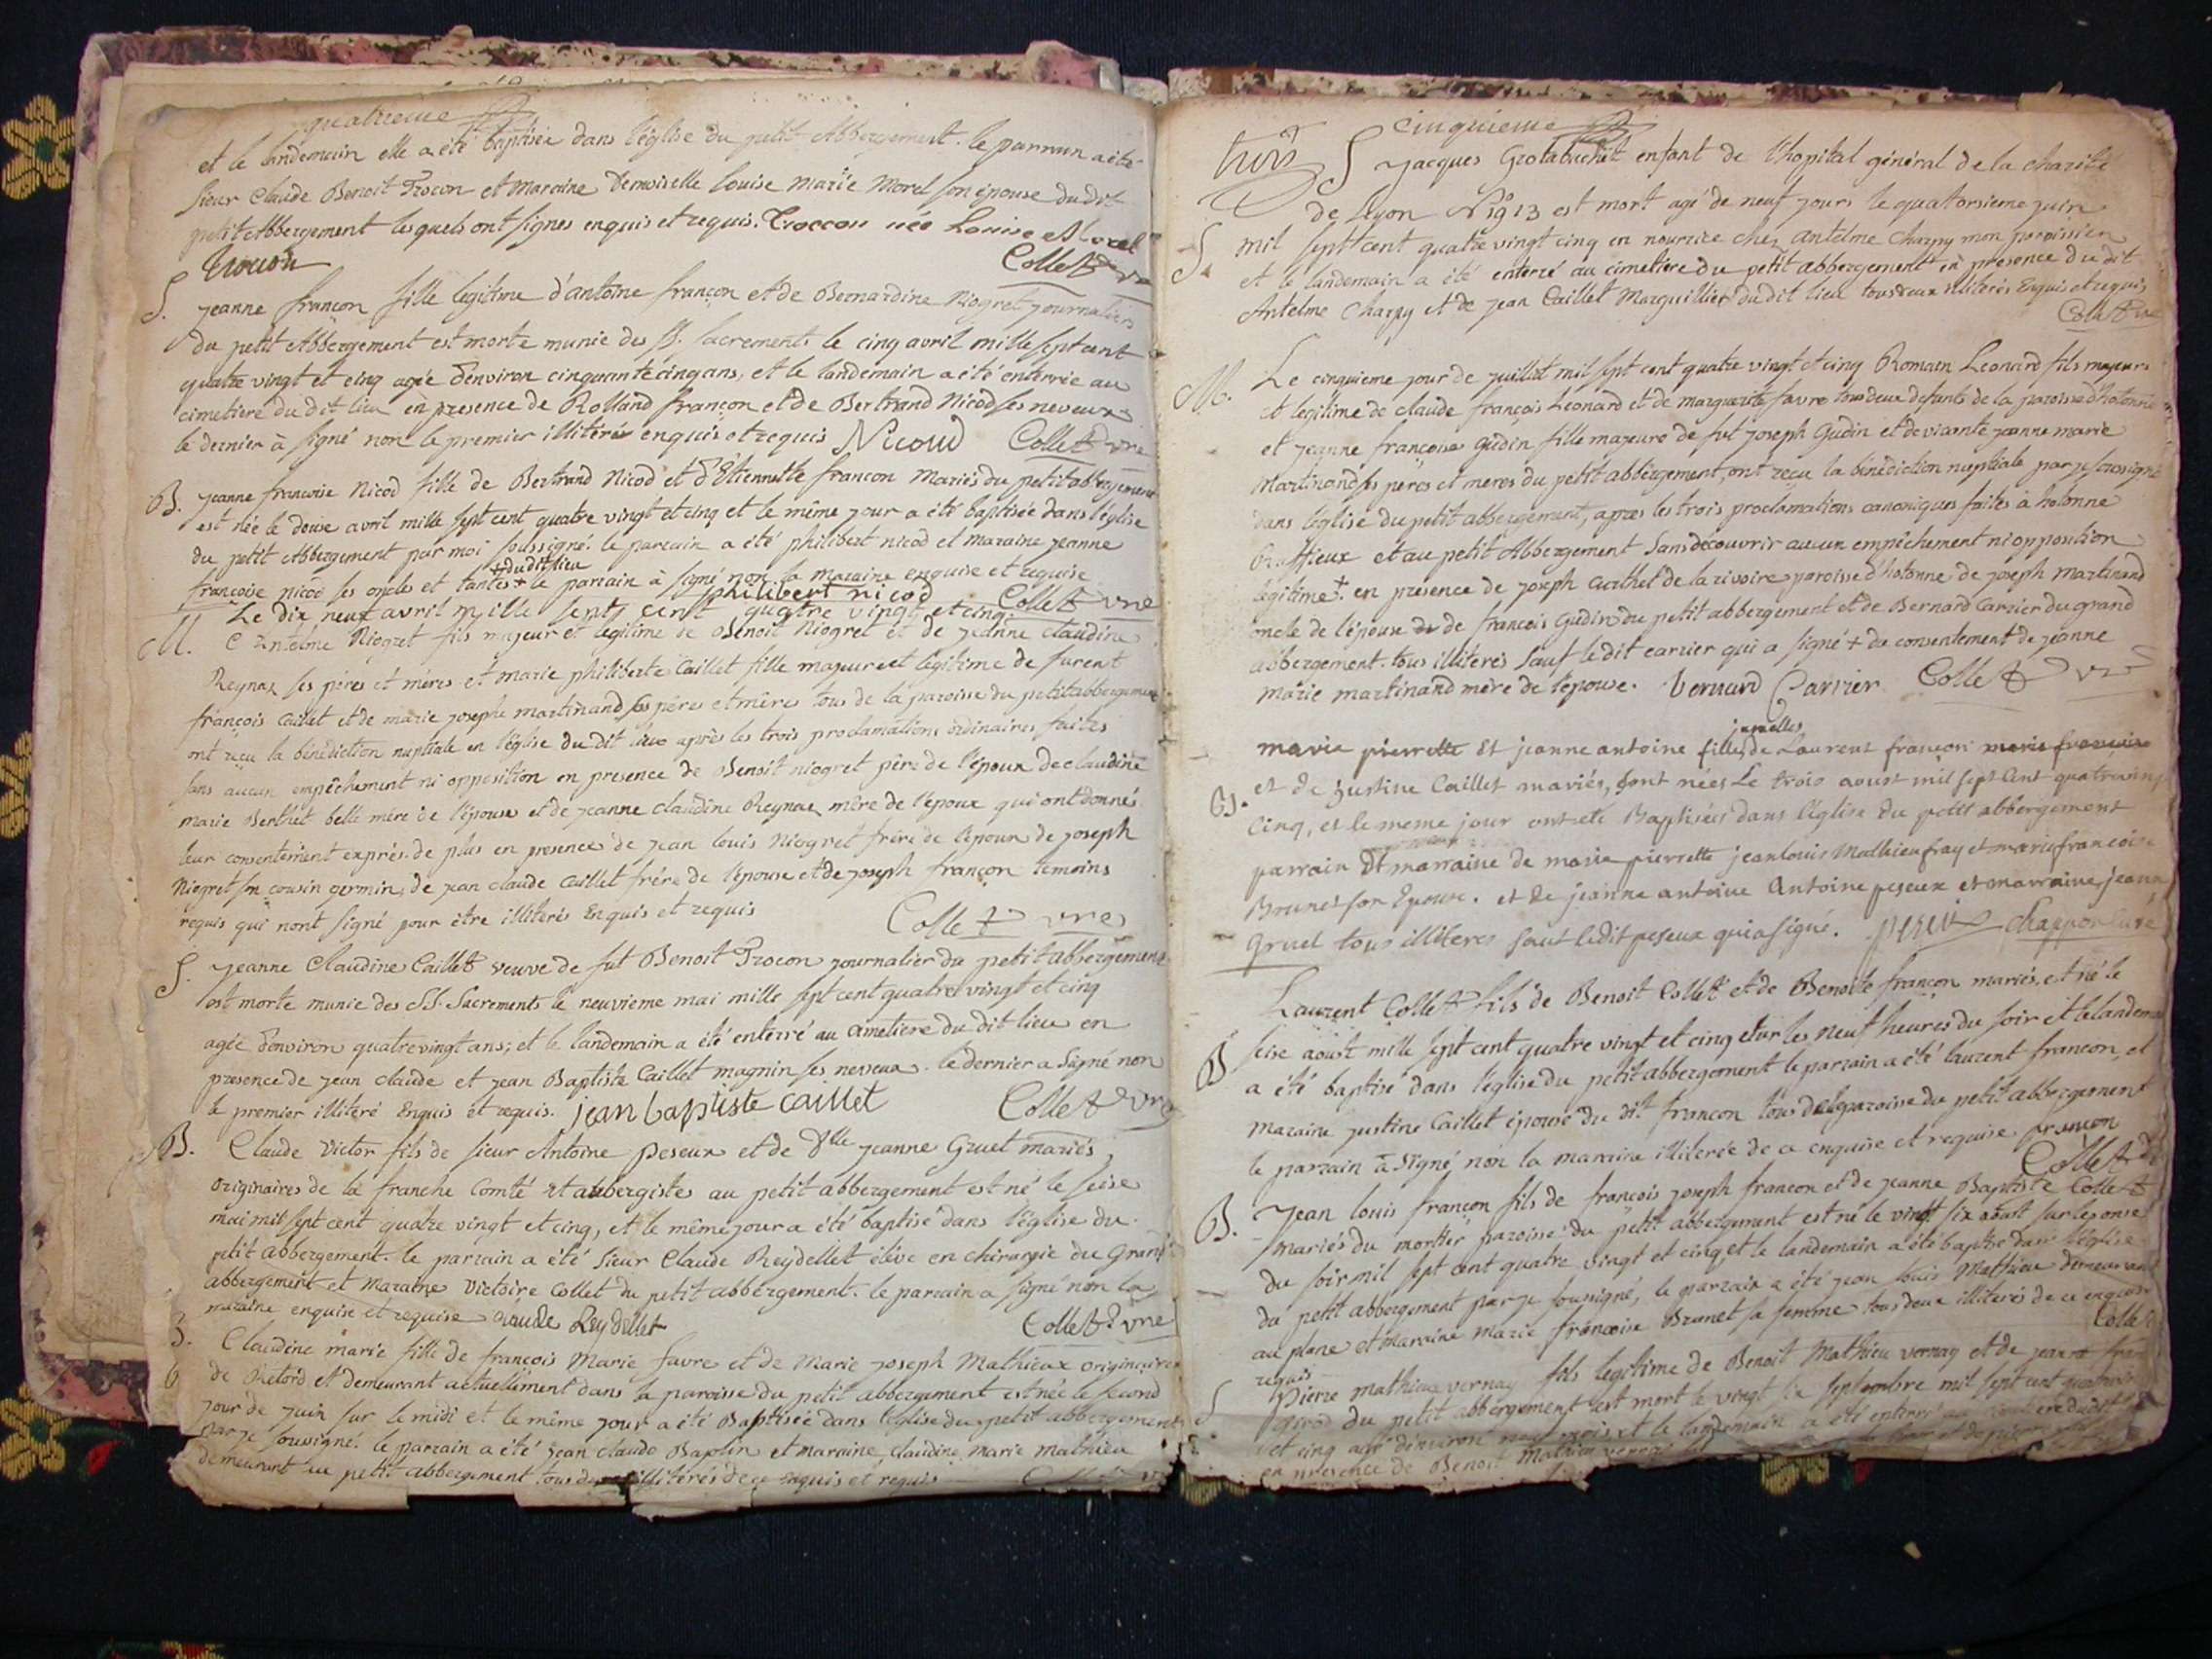 quatrieme
et le landemain elle a été baptisée dans l'église du petit Abbergement. le parrain a été
sieur Claude Benoit Trocon et maraine Demoiselle Louise Marie Morel son épouse du dit
petit Abbergement lesquels ont signés enquis et requis. Troccon née Louise Morel
Trocon Collet vre
S. jeanne françon fille legitime d'antoine françon et de Bernardine Niogret journaliers
du petit Abbergement est morte munie des SS. sacrements le cinq avril mille sept cent
quatre vingt et cinq agée d'environ cinquante cinq ans, et le landemain a été enterrée au
cimetiere du dit lieu en presence de Rolland françon et de Bertrand Nicod ses neveux
le dernier à signé non le premier illiteré enquis et requis Nicoud Collet vre
B. jeanne francoise Nicod fille de Bertrand Nicod et d'Etiennette francon Mariés du petit abbergement
est née le douse avril mille sept cent quatre vingt et cinq et le même jour a été baptisée dans l'église
du petit Abbergement par moi soussigné. le parrain a été philibert nicod et maraine jeanne
+ du dit lieu
françoise nicod ses oncles et tantes + le parrain à signé non la maraine enquise et requise
philibert nicod Collet vre
Le dix neuf avril mille sept cent quatre vingt et cinq
M. Antelme Niogret fils majeur et legitime de Benoit Niogret et de jeanne claudine
Reynax ses péres et méres et marie philiberte Caillet fille majeure et legitime de furent
françois Caillet et de marie josephe martinand ses péres et mêres tous de la paroisse du petit abbergement
ont reçu la bénédiction nuptiale en l'église du dit lieu après les trois proclamations ordinaires faites
sans aucun empêchement ni opposition en presence de Benoit niogret pére de l'époux de claudine
marie Berthet belle mére de l'épouse et de jeanne claudine Reynax mêre de l'époux qui ont donnés
leur consentement exprés. de plus en presence de jean louis Niogret frére de l'époux de joseph
Niogret son cousin germin, de jean claude Caillet frére de l'épouse et de joseph françon temoins
requis qui nont signé pour être illiterés Enquis et requis Collet vre
S. jeanne Claudine Caillet veuve de fut Benoit Trocon journalier du petit abbergement
est morte munie des SS. Sacrements le neuvieme mai mille sept cent quatre vingt et cinq
agée d'environ quatre vingt ans; et le landemain a été enterré au cimetiere du dit lieu en
presence de jean claude et jean Baptiste Caillet magnin ses neveux. le dernier a signé non
le premier illiteré Enquis et requis. jean baptiste caillet Collet vre
B. Claude Victor fils de sieur Antoine peseux et de Dlle jeanne Gruet mariés
originaires de la franche Comté et aubergistes au petit abbergement est né le seise
mai mil sept cent quatre vingt et cinq, et le même jour a été baptisé dans l'église du
petit abbergement. le parrain a été sieur Claude Reydellet éléve en chirurgie du Grand
abbergement et maraine Victoire Collet du petit abbergement. le parrain a signé non la
maraine enquise et requise claude Reydellet Collet vre
B. Claudine marie fille de françois Marie favre et de Marie joseph Mathieux originaires
de Retord et demeurant actuellement dans la paroisse du petit abbergement est née le second
jour de juin sur le midi et le même jour a été Baptisée dans l'église du petit abbergement
par je soussigné. le parrain a été jean claude Baplin et maraine claudine marie mathieu
demeurant au petit abbergement tous deux illiterés de ce enquis et requis
cinquieme
trois S jacques Grolabuchet enfant de l'hopital général de la charité
de Lyon N° 1913 est mort agé de neuf jours le quatorsieme juin
S. mil sept cent quatre vingt cinq en nourrice chez Antelme Charpy mon paroissien
et le landemain a été enterré au cimetiere du petit abbergement en presence du dit
Antelme Charpy et de jean Caillet Marguillier du dit lieu tous deux illiterés Enquis et requis
Collet vre
M. Le cinquieme jour de juillet mil sept cent quatre vingt et cinq Romain Leonard fils majeure
et legitime de claude françois Leonard et de marguerite favre tous deux defunts de la paroisse d'hotonne
et jeanne françoise Gudin fille majeure de fut joseph Gudin et de vivante jeanne marie
Martinand ses peres et meres du petit abbergement, ont reçu la bénédiction nuptiale par je soussigné
dans l'église du petit abbergement, apres les trois proclamations canoniques faites à hotonne
Ruffieux et au petit Abbergement sans découvrir aucun empêchement ni opposition
legitime +. en presence de joseph Curthet de la rivoire paroisse d'hotonne de joseph Martinand
oncle de l'épouse de françois Gudin du petit abbergement et de Bernard Carrier du grand
abbergement. tous illiterés sauf ledit carrier qui a signé + du consentement de jeanne
marie martinand mére de l'épouse. Bernard Carrier Collet vre
jumelles
marie pierrette Et jeanne antoine filles de Laurent françon marie francoise
B. et de justine Caillet mariés, sont nées Le trois aoust mil sept cent quatre vingt
cinq, et le meme jour ont eté Baptisées dans l'église du petit abbergement
parrain Et marraine de marie pierrette jean louis Mathieu fray et marie francoise
Brunet son Epouse. et de jeanne antoine Antoine peseux et marraine jeanne
Gruel tous illiteres sauf ledit peseux qui a signé. peseux Chappon Curé
Laurent Collet fils de Benoit Collet et de Benoite françon mariés, et né le
B seise aoust mille sept cent quatre vingt et cinq et sur les neuf heures du soir et le landemain
a été baptisé dans l'église du petit abbergement le parrain a été laurent francon, et
maraine justine Caillet épouse du dit francon tous de la paroisse du petit abbergement
le parrain à signé, non la maraine illiterée de ce enquise et requise francon
Collet
B. Jean louis françon fils de françois joseph francon et de jeanne Baptiste Collet
mariés du mortier paroisse du petit abbergement est né le vingt six aoust sur les onse
du soir mil sept cent quatre vingt et cinq, et le landemain a été baptisé dans l'église
du petit abbergement par je soussigné, le parrain a été jean louis Mathieu demeurant
au plane et maraine Marie francoise Brunet sa femme tous deux illiterés de ce enquis
requis Collet
S Pierre mathieu vernay fils legitime de Benoit Mathieu vernay et de jeanne
du petit abbergement est mort le vingt septembre mil sept cent quatre vingt
et cinq agé d'environ et le landemain a été enterré
en presence de Benoit Mathieu vernay